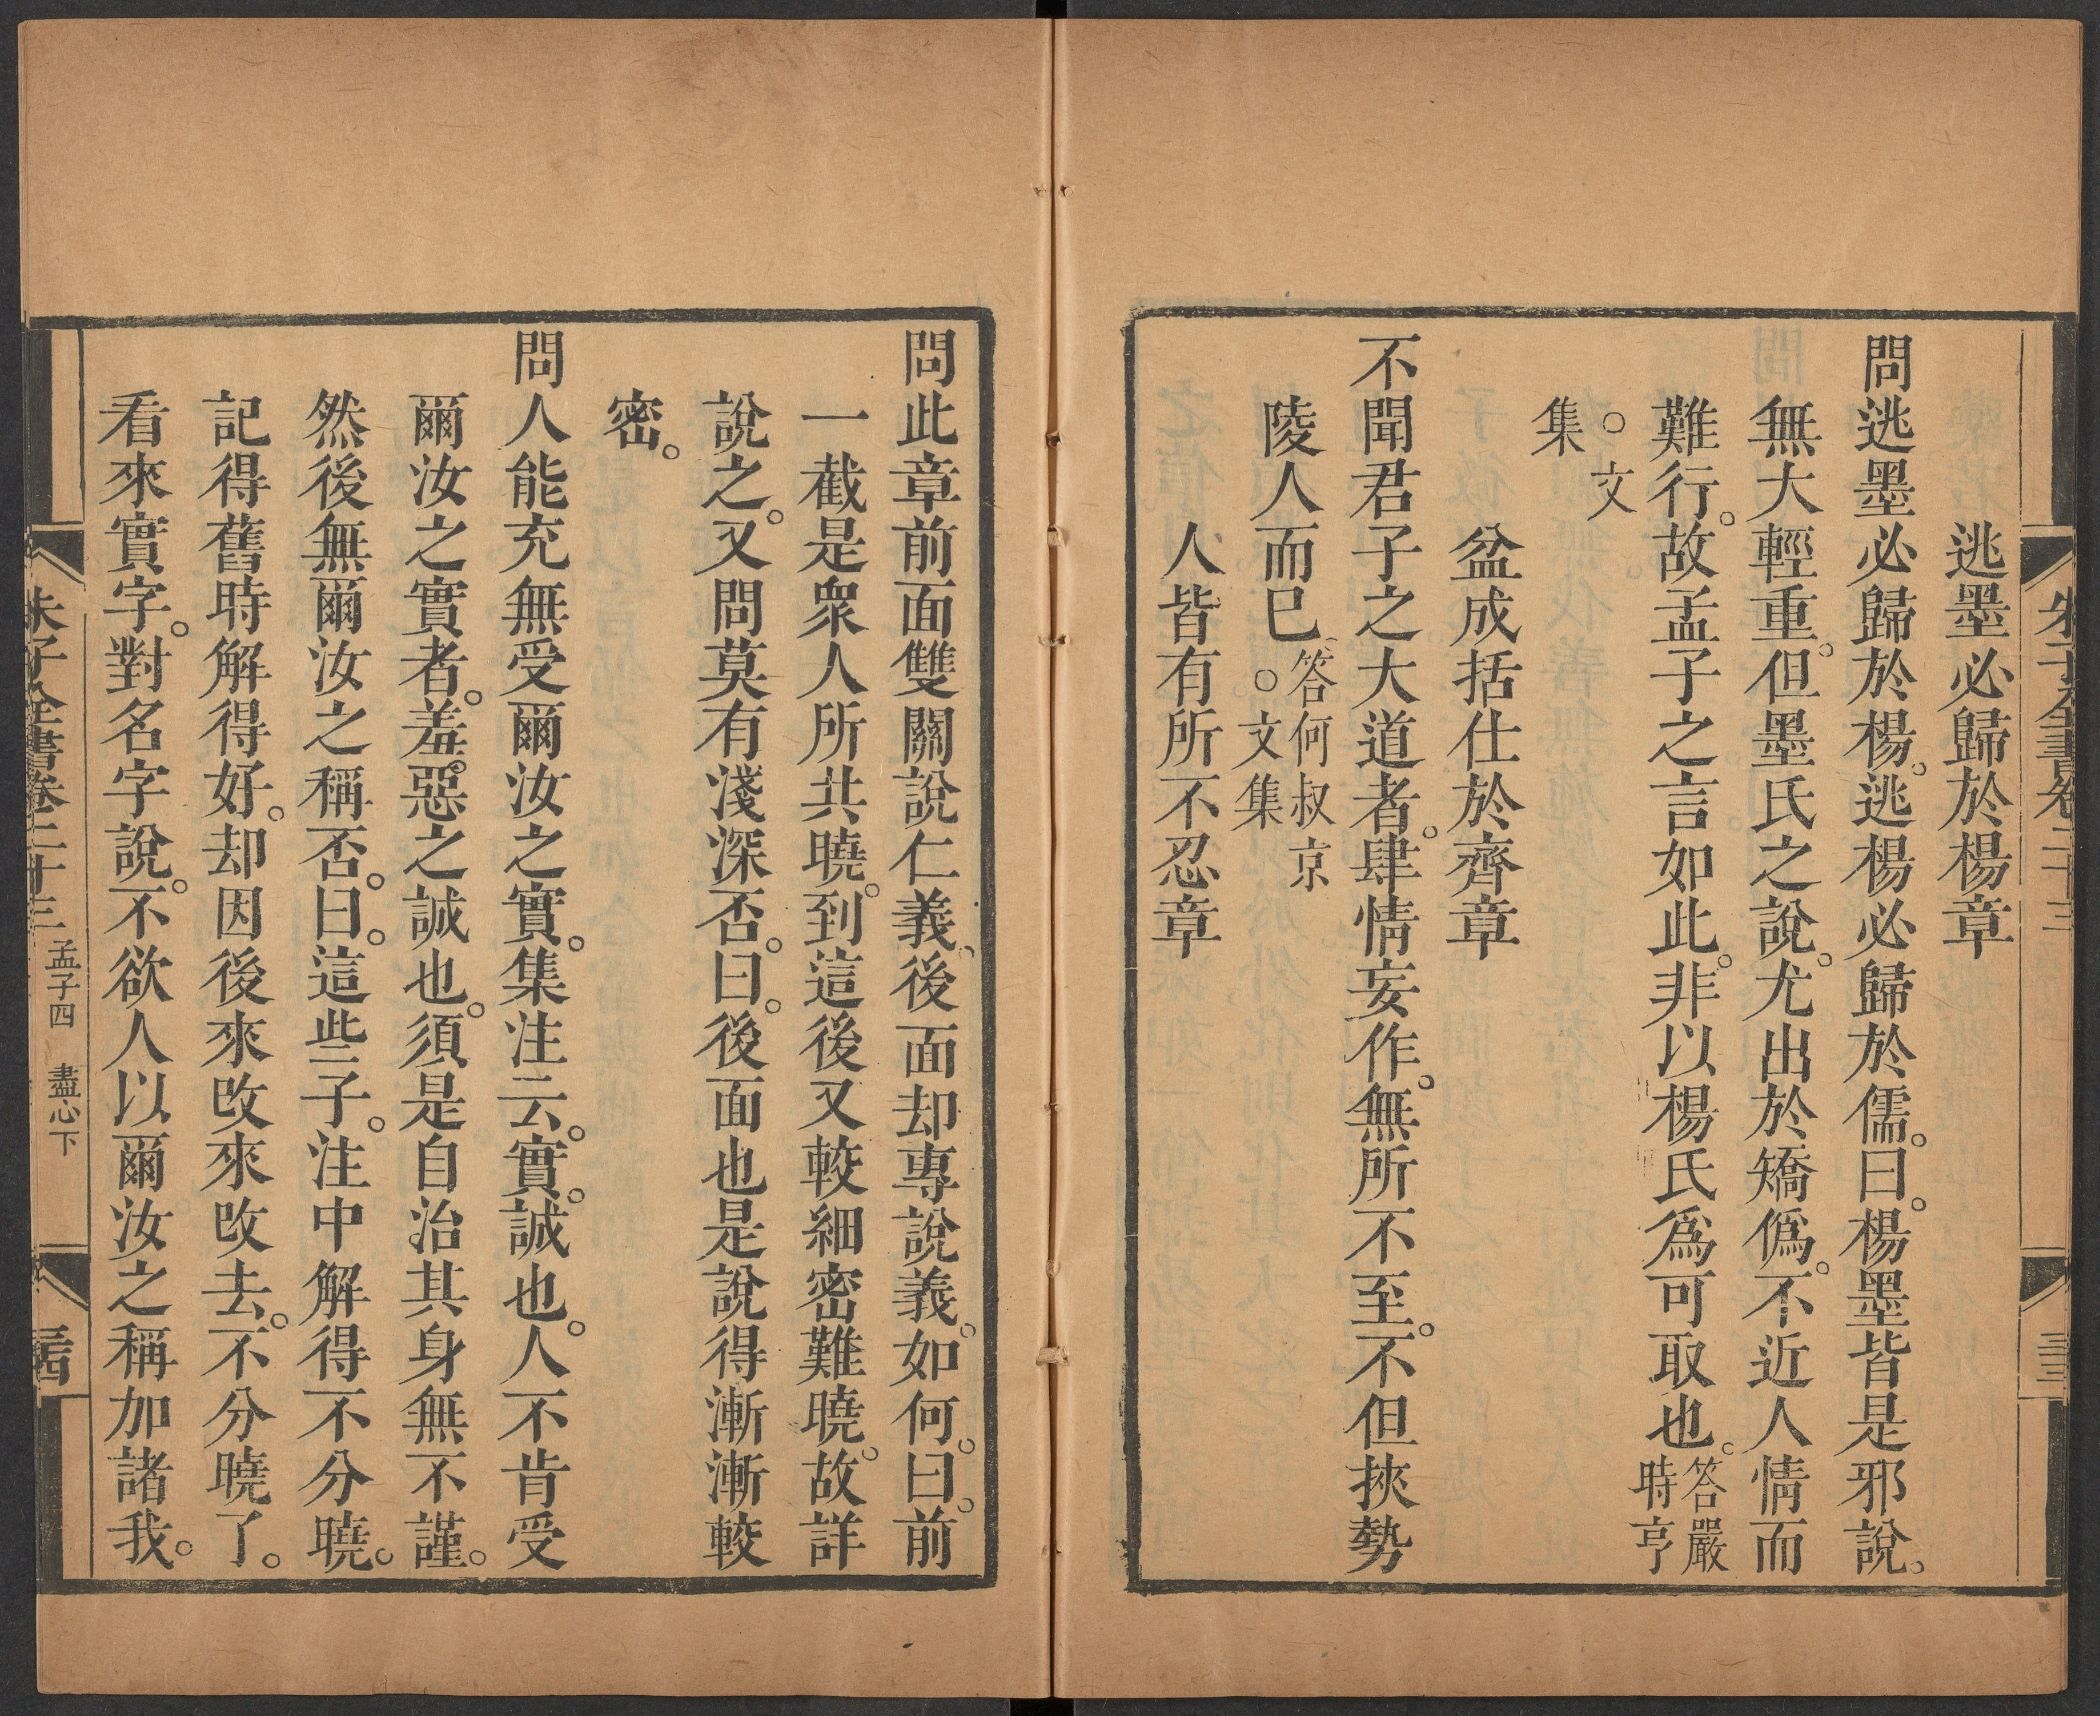 逃墨必歸於楊章
問逃墨必歸於楊。逃楊必歸於儒。曰。楊墨皆是邪說。
無大輕重。但墨氏之說。尤出於矯僞。不近人情而
難行。故孟子之言如此。非以楊氏爲可取也。答嚴時亨
○文集
盆成括仕於齊章
不聞君子之大道者。肆情妄作。無所不至。不但挾勢
陵人而已。答何叔京○文集
人皆有所不忍章
問此章前面雙關說仁義、後面却專說義。如何。曰。前
一截是衆人所共曉。到這後又較細密難曉。故詳
說之。又問莫有淺深否。曰。後面也是說得漸漸較
密。
問人能充無受爾汝之實。集注云。實。誠也。人不肯受
爾汝之實者。羞惡之誠也。須是自治其身無不謹。
然後無爾汝之稱否。曰。這些子。注中解得不分曉。
記得舊時解得好。却因後來改來改去。不分曉了。
看來實字。對名字說。不欲人以爾汝之稱加諸我。
朱子全書卷二十三 孟子四 盡心下